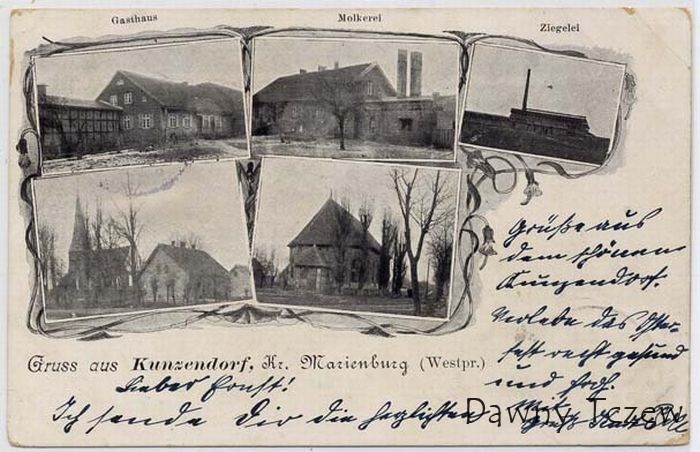 Gasthaus
Molkerei
Ziegelei
Gruss aus Kunzendorf, Kr. Marienburg (Westpr.)
Lieber Ernst!
Ich sende Dir die herzlichsten
Grüße aus
dem schönen
Kunzendorf.
Verlebe das Oster-
fest recht gesund
und froh.
Mit
Gruß
Dawny Tczew